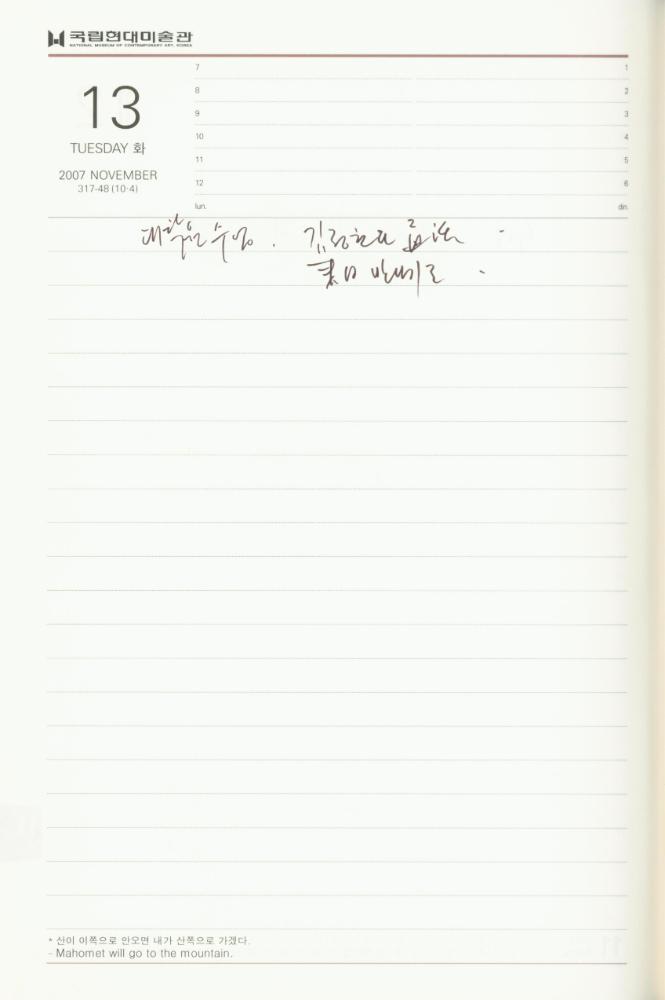 국립현대미술관
NATIONAL MUSEUM OF CONTEMPORARY ART, KOREA
13
TUESDAY 화
2007 NOVEMBER
317-48 (10·4)
7 1
8 2
9 3
10 4
11 5
12 6
lun. din.
대학원 수업.
* 산이 이쪽으로 안오면 내가 산쪽으로 가겠다.
- Mahomet will go to the mountain.